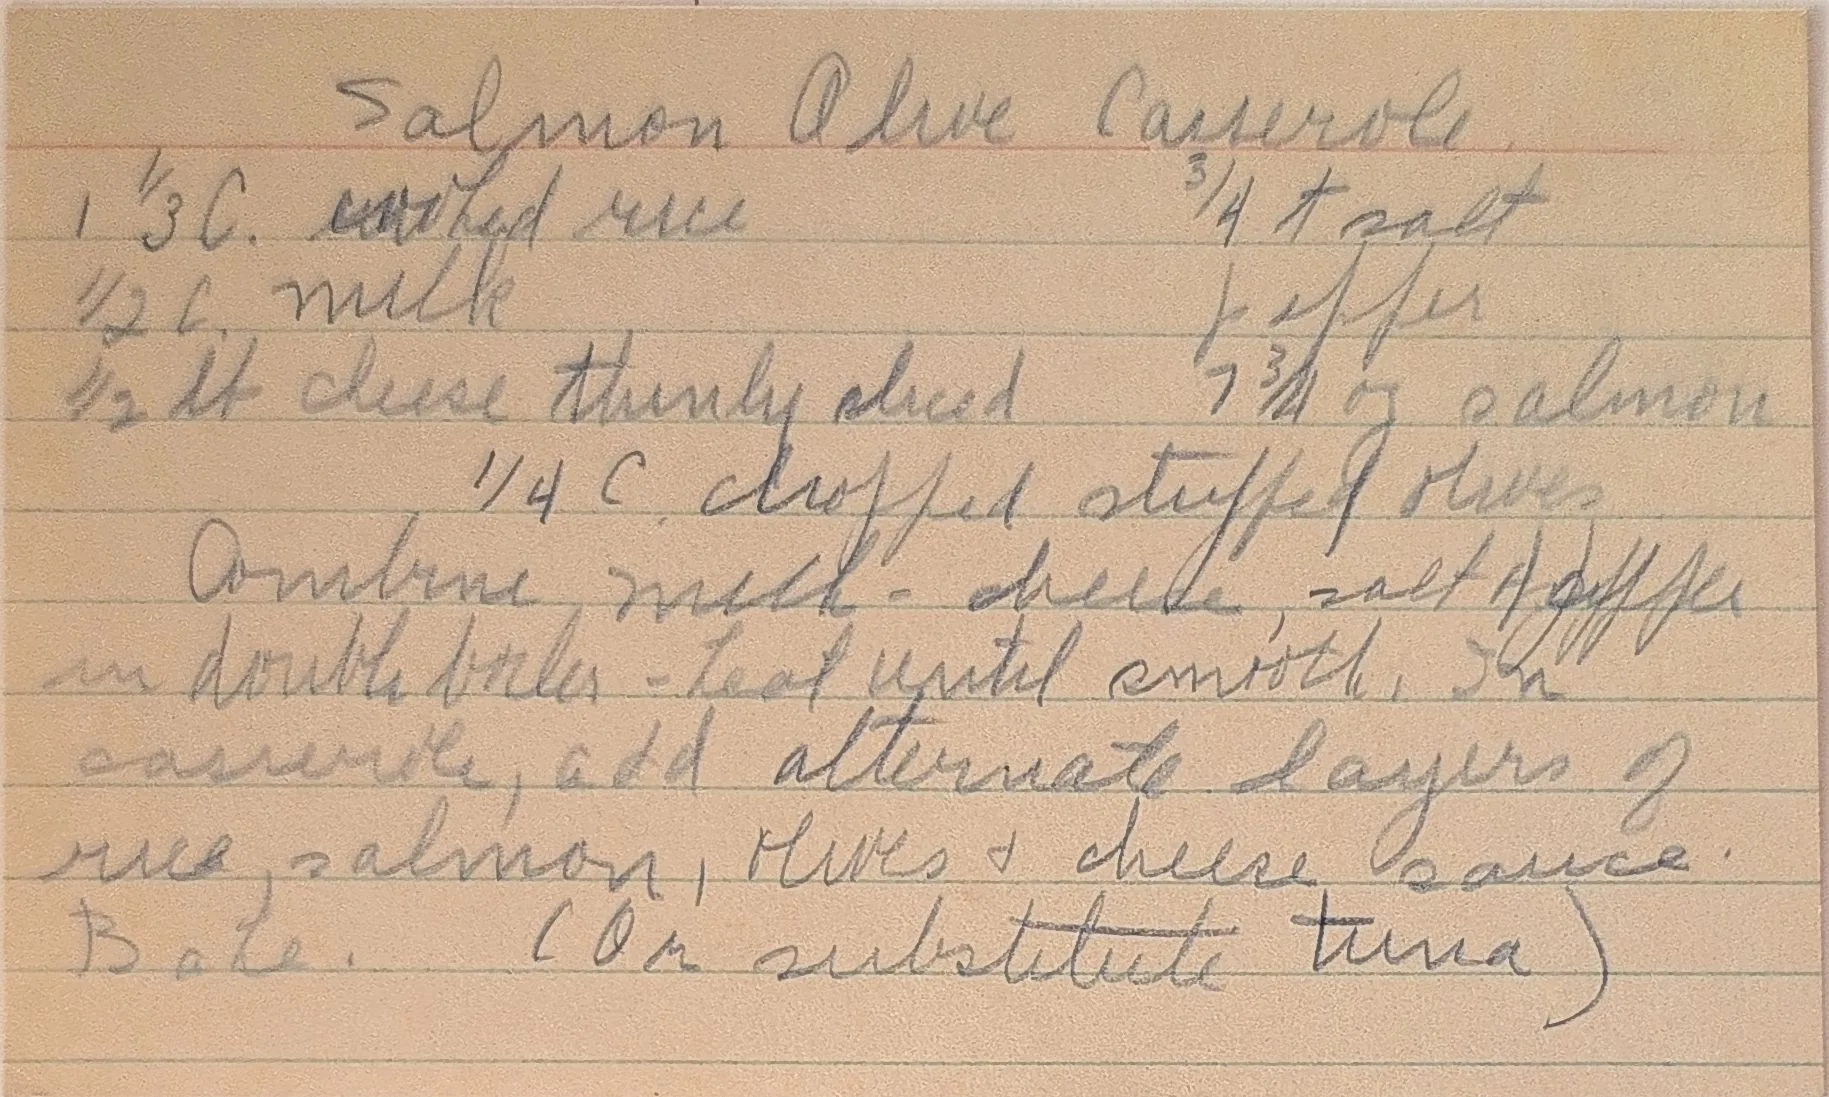 Salmon Olive Casserole.
1 1/3 C. cooked rice 3/4 t salt
1/2 C. milk pepper
1/2 lb cheese thinly sliced 7 3/4 oz salmon
1/4 C. chopped stuffed olives
Combine milk - cheese, salt & pepper
in double boiler - heat until smooth. In
casserole, add alternate layers of
rice, salmon, olives & cheese sauce.
Bake. (Or substitute tuna)